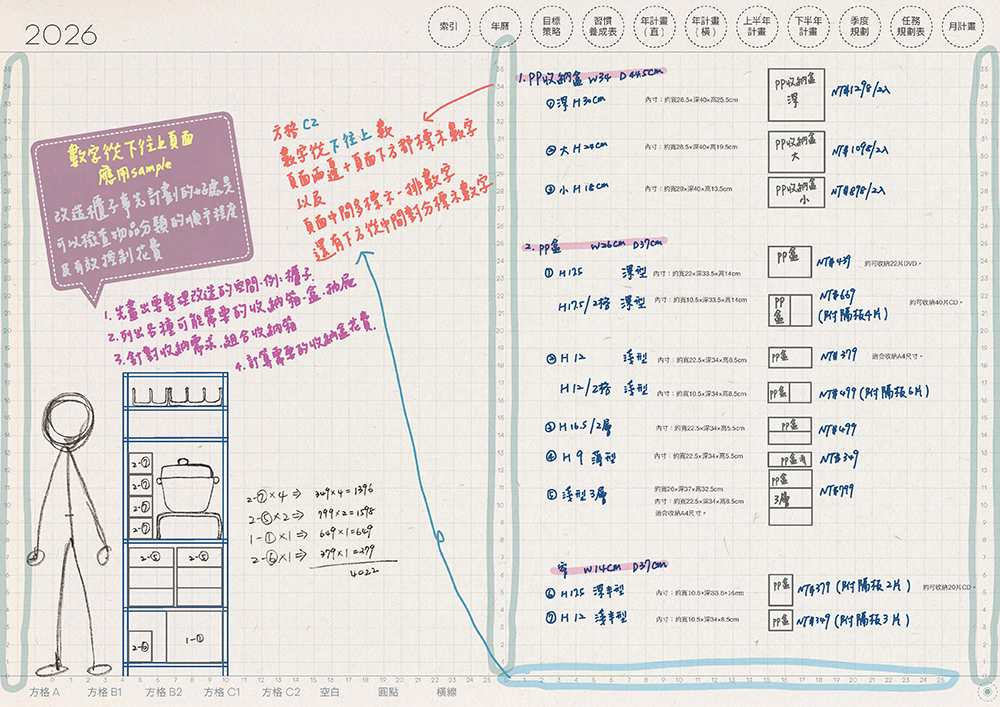 2026
索引
年曆
目標
策略
習慣
養成表
年計畫
(直)
年計畫
(橫)
上半年
計畫
下半年
計畫
季度
規劃
任務
規劃表
月計畫
數字從下往上頁面
應用sample
改造櫃子事先計劃的好處是
可以檢查物品分類的順手程度
及有效控制花費
方格 C2
數字從下往上 數
頁面兩邊+頁面下方都標示數字
以及
頁面中間多標示一排數字
還有下方從中間對分標示數字
1. 先畫出要整理改造的空間,例:櫃子
2. 列出各種可能需要的收納箱、盒、抽屜
3. 針對收納需求,組合收納箱
4. 計算需要的收納盒花費.
2-⑦
2-⑦
2-⑦
2-⑦
2-⑤
2-⑤
2-⑥
1-①
2-⑦×4 ⇒ 349×4=1396
2-⑤×2 ⇒ 799×2=1598
1-①×1 ⇒ 649×1=649
2-⑥×1 ⇒ 379×1=379
4022
1. PP收納盒 W34 D44.5cm
①深 H30cm 內寸:約寬28.5×深40×高25.5cm PP收納盒 深 NT$1298/2入
②大 H24cm 內寸:約寬28.5×深40×高19.5cm PP收納盒 大 NT$1098/2入
③小 H18cm 內寸:約寬29×深40×高13.5cm PP收納盒 小 NT$898/2入
2. PP盒 W26cm D37cm
① H17.5 深型 內寸:約寬22×深33.5×高14cm PP盒 NT$439 約可收納22片DVD。
H17.5/2格 深型 內寸:約寬10.5×深33.5×高14cm PP盒 NT$669 (附隔板4片) 約可收納40片CD。
② H12 淺型 內寸:約寬22.5×深34×高8.5cm PP盒 NT$379 適合收納A4尺寸。
H12/2格 淺型 內寸:約寬10.5×深34×高8.5cm PP盒 NT$499 (附隔板6片)
③ H16.5/2層 內寸:約寬22.5×深34×高5.5cm PP盒 NT$499
④ H9 薄型 內寸:約寬22.5×深34×高5.5cm PP盒薄 NT$349
⑤ 淺型3層 約寬26×深37×高32.5cm PP盒 3層 NT$799
內寸:約寬22.5×深34×高8.5cm
適合收納A4尺寸。
窄 W14cm D37cm
⑥ H17.5 深半型 內寸:約寬10.5×深33.5×14cm PP盒 NT$379 (附隔板2片) 約可收納20片CD。
⑦ H12 淺半型 內寸:約寬10.5×深34×8.5cm PP盒 NT$349 (附隔板3片)
方格 A
方格 B1
方格 B2
方格 C1
方格 C2
空白
圓點
橫線